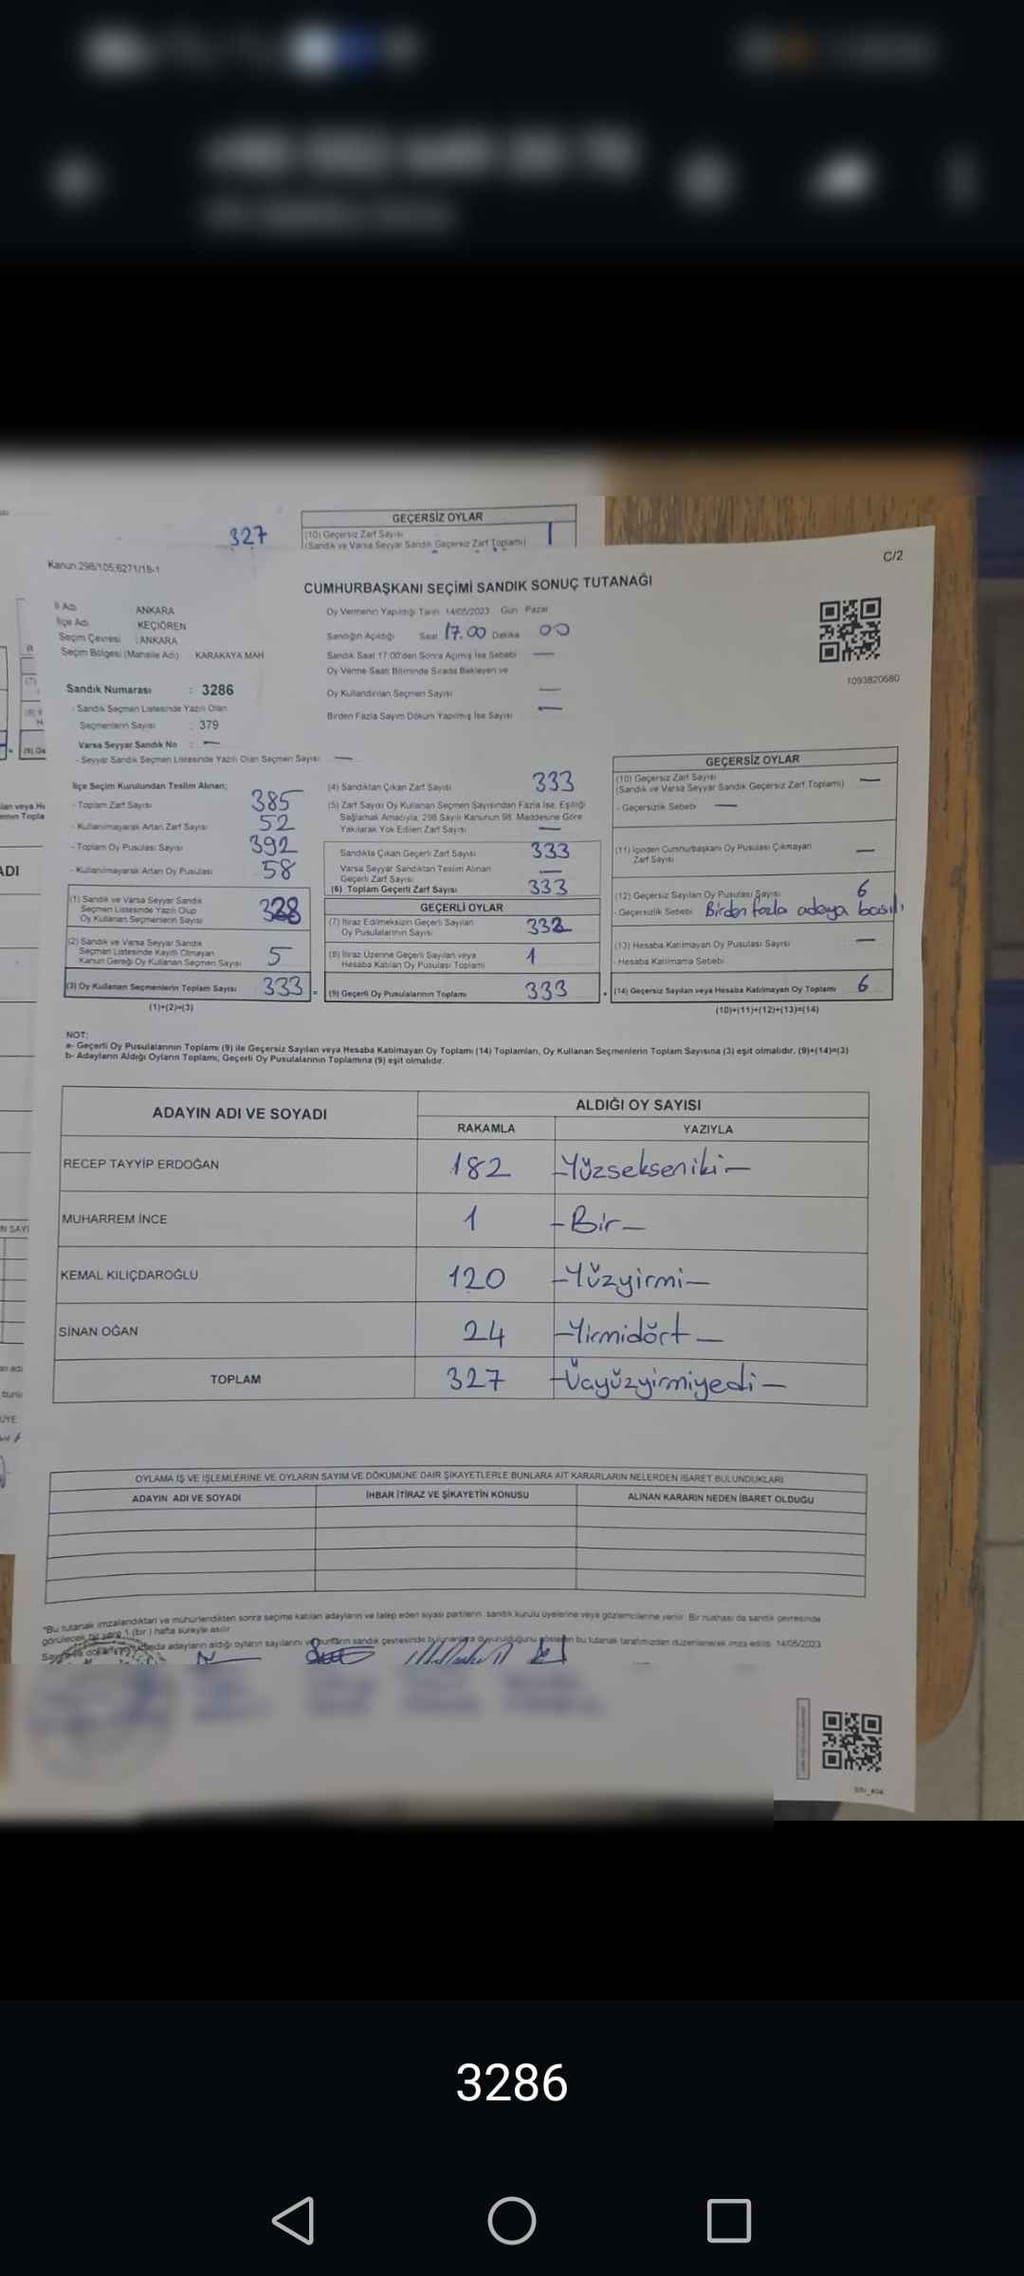 327
GEÇERSİZ OYLAR
(10) Geçersiz Zarf Sayısı
(Sandık ve Varsa Seyyar Sandık Geçersiz Zarf Toplamı) 1
Kanun 298/105;6271/18-1
C/2
CUMHURBAŞKANI SEÇİMİ SANDIK SONUÇ TUTANAĞI
İl Adı ANKARA
İlçe Adı KEÇİÖREN
Seçim Çevresi : ANKARA
Seçim Bölgesi (Mahalle Adı) : KARAKAYA MAH
Sandık Numarası : 3286
- Sandık Seçmen Listesinde Yazılı Olan
Seçmenlerin Sayısı : 379
Varsa Seyyar Sandık No : —
- Seyyar Sandık Seçmen Listesinde Yazılı Olan Seçmen Sayısı —
Oy Vermenin Yapıldığı Tarih 14/05/2023 Gün Pazar
Sandığın Açıldığı Saat 17.00 Dakika 00
Sandık Saat 17:00'den Sonra Açımış İse Sebebi —
Oy Verme Saati Bitiminde Sırada Bekleyen ve
Oy Kullandırılan Seçmen Sayısı —
Birden Fazla Sayım Döküm Yapılmış İse Sayısı —
1093820680
İlçe Seçim Kurulundan Teslim Alınan;
- Toplam Zarf Sayısı 385
- Kullanılmayarak Artan Zarf Sayısı 52
- Toplam Oy Pusulası Sayısı 392
- Kullanılmayarak Artan Oy Pusulası 58
(1) Sandık ve Varsa Seyyar Sandık
Seçmen Listesinde Yazılı Olup
Oy Kullanan Seçmenlerin Sayısı 328
(2) Sandık ve Varsa Seyyar Sandık
Seçmen Listesinde Kayıtlı Olmayan
Kanun Gereği Oy Kullanan Seçmen Sayısı 5
(3) Oy Kullanan Seçmenlerin Toplam Sayısı 333 =
(1)+(2)=(3)
(4) Sandıktan Çıkan Zarf Sayısı 333
(5) Zarf Sayısı Oy Kullanan Seçmen Sayısından Fazla İse, Eşitliği
Sağlamak Amacıyla, 298 Sayılı Kanunun 98. Maddesine Göre
Yakılarak Yok Edilen Zarf Sayısı —
Sandıkta Çıkan Geçerli Zarf Sayısı 333
Varsa Seyyar Sandıktan Teslim Alınan
Geçerli Zarf Sayısı —
(6) Toplam Geçerli Zarf Sayısı 333
GEÇERLİ OYLAR
(7) İtiraz Edilmeksizin Geçerli Sayılan
Oy Pusulalarının Sayısı 332
(8) İtiraz Üzerine Geçerli Sayılan veya
Hesaba Katılan Oy Pusulası Toplamı 1
(9) Geçerli Oy Pusulalarının Toplamı 333
GEÇERSİZ OYLAR
(10) Geçersiz Zarf Sayısı
(Sandık ve Varsa Seyyar Sandık Geçersiz Zarf Toplamı) —
- Geçersizlik Sebebi —
(11) İçinden Cumhurbaşkanı Oy Pusulası Çıkmayan
Zarf Sayısı —
(12) Geçersiz Sayılan Oy Pusulası Sayısı 6
- Geçersizlik Sebebi Birden fazla adaya
(13) Hesaba Katılmayan Oy Pusulası Sayısı —
- Hesaba Katılmama Sebebi
(14) Geçersiz Sayılan veya Hesaba Katılmayan Oy Toplamı 6
(10)+(11)+(12)+(13)=(14)
NOT:
a- Geçerli Oy Pusulalarının Toplamı (9) ile Geçersiz Sayılan veya Hesaba Katılmayan Oy Toplamı (14) Toplamları, Oy Kullanan Seçmenlerin Toplam Sayısına (3) eşit olmalıdır. (9)+(14)=(3)
b- Adayların Aldığı Oyların Toplamı, Geçerli Oy Pusulalarının Toplamına (9) eşit olmalıdır.
ADAYIN ADI VE SOYADI
ALDIĞI OY SAYISI
RAKAMLA YAZIYLA
RECEP TAYYİP ERDOĞAN 182 -Yüzsekseniki-
MUHARREM İNCE 1 -Bir-
KEMAL KILIÇDAROĞLU 120 -Yüzyirmi-
SİNAN OĞAN 24 -Yirmidört-
TOPLAM 327 -Üçyüzyirmiyedi-
OYLAMA İŞ VE İŞLEMLERİNE VE OYLARIN SAYIM VE DÖKÜMÜNE DAİR ŞİKAYETLERLE BUNLARA AİT KARARLARIN NELERDEN İBARET BULUNDUKLARI
ADAYIN ADI VE SOYADI İHBAR İTİRAZ VE ŞİKAYETİN KONUSU ALINAN KARARIN NEDEN İBARET OLDUĞU
*Bu tutanak imzalandıktan ve mühürlendikten sonra seçime katılan adayların ve talep eden siyasi partilerin sandık kurulu üyelerine veya gözlemcilerine verilir. Bir nüshası da sandık çevresinde
görülecek bir yere 1 (bir) hafta süreyle asılır.
adayların aldığı oyların sayılarını bu tutanak tarafımızdan düzenlenerek imza edildi. 14/05/2023
3286